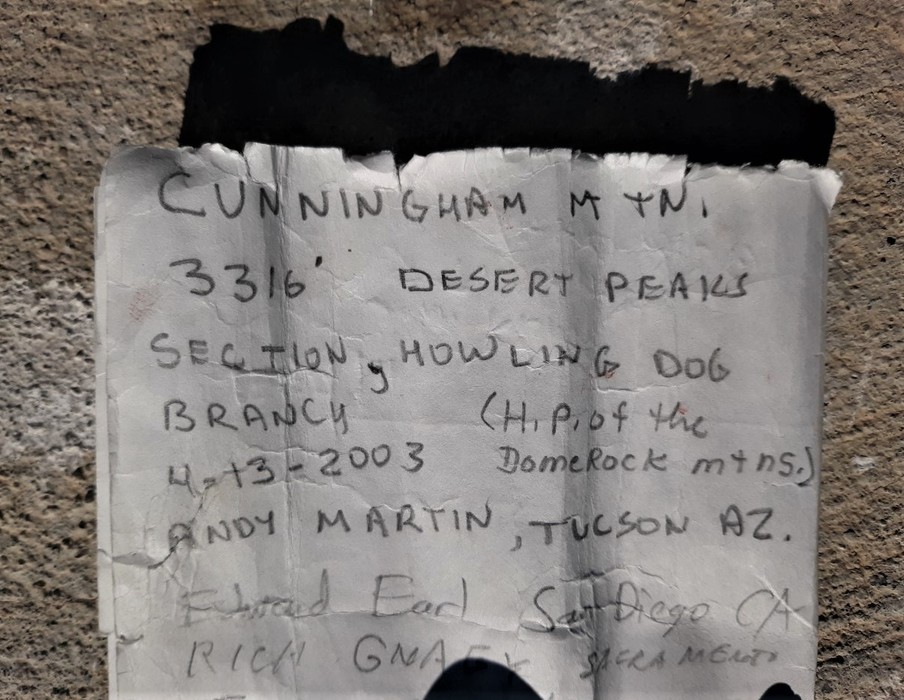 CUNNINGHAM MTN.
3316' DESERT PEAKS
SECTION, HOWLING DOG
BRANCH (H.P. of the
4-13-2003 DomeRock mtns.)
ANDY MARTIN, TUCSON AZ.
Edward Earl San Diego CA
RICH SACRAMENTO